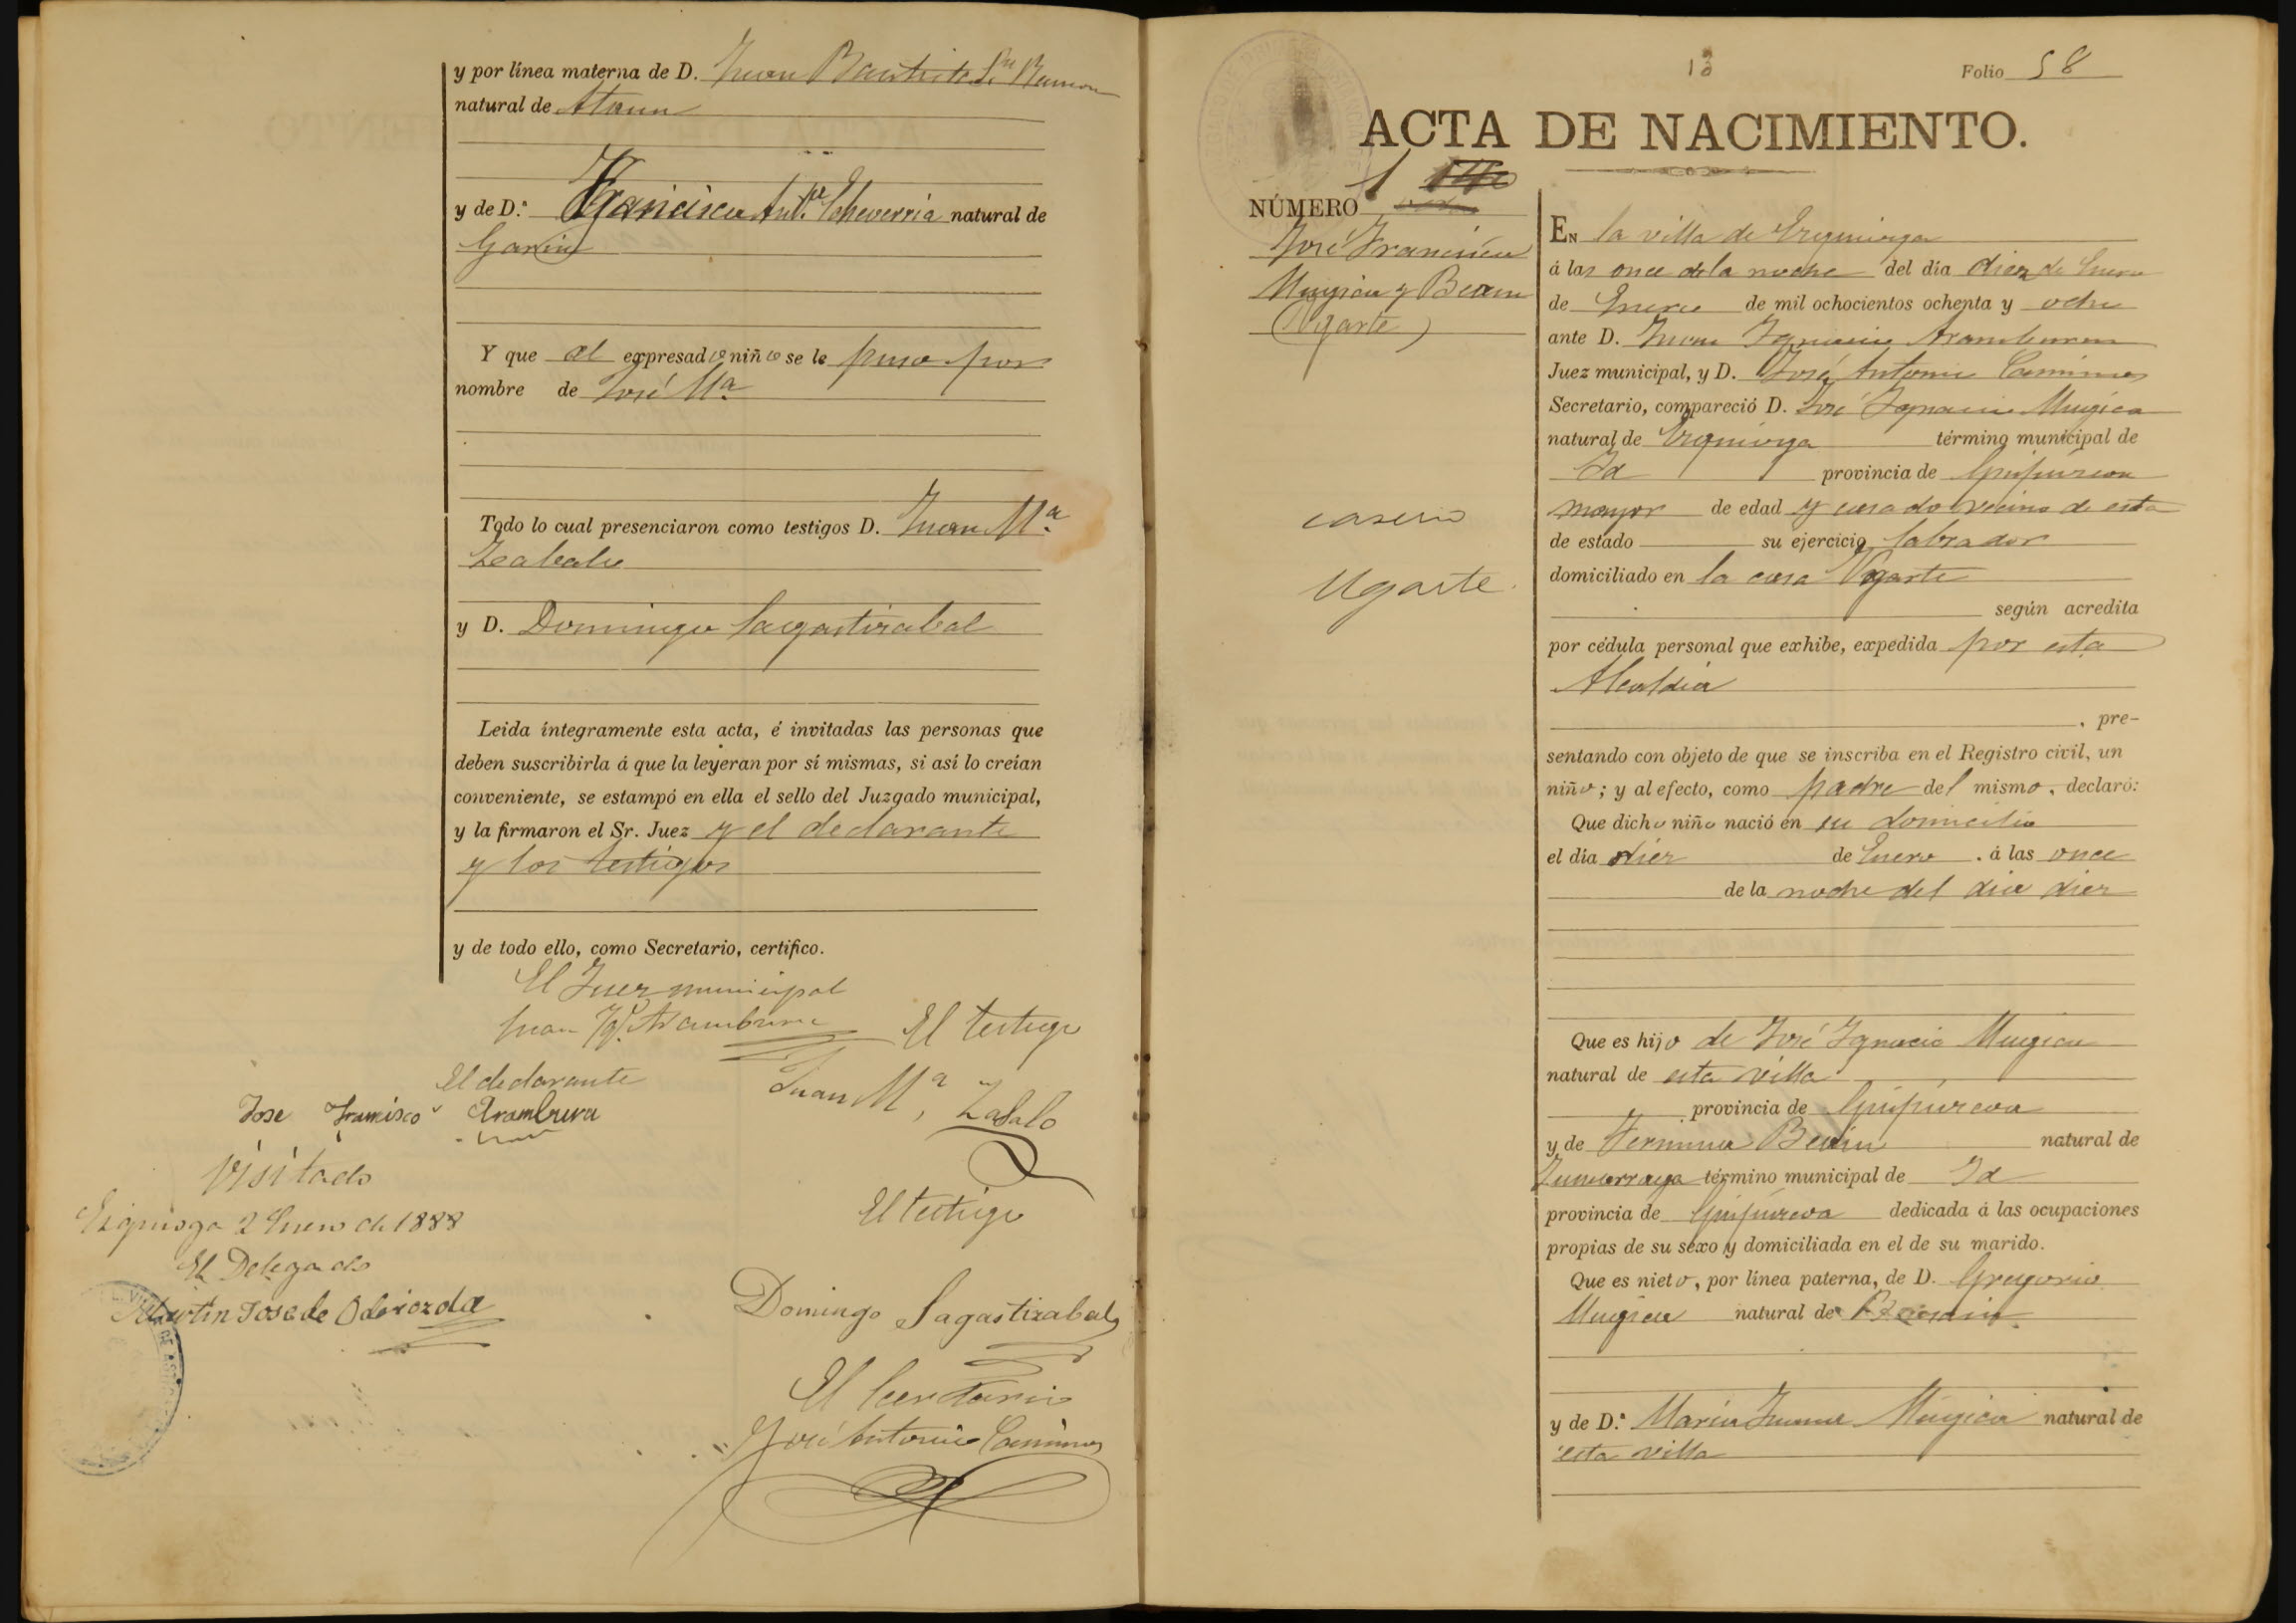 y por línea materna de D. Juan Bautista Sn Ramon
natural de Ataun
y de D.ª Francisca Ant.ª Echeverria natural de
Y que al expresado niño se le puso por
nombre de José M.ª
Todo lo cual presenciaron como testigos D. Juan M.ª
Zabalo
y D. Domingo Sagastizabal
Leida íntegramente esta acta, é invitadas las personas que
deben suscribirla á que la leyeran por sí mismas, si así lo creían
conveniente, se estampó en ella el sello del Juzgado municipal,
y la firmaron el Sr. Juez y el declarante
y los testigos
y de todo ello, como Secretario, certifico.
El Juez municipal
Juan Ig.º Aramburu
El testigo
El declarante
Juan M.ª Zabalo
Jose Francisco Aramburu
Visitado
El testigo
Ezquioga 2 Enero de 1888
El Delegado
Martin Jose de Odriozola
Domingo Sagastizabal
El Secretario
José Antonio Caminos
Folio 58
ACTA DE NACIMIENTO.
NÚMERO 1
José Francisco
Mugica y Beain
(Ugarte)
caserio
Ugarte.
En la villa de Ezquioga
á las once de la noche del día diez de Enero
de Enero de mil ochocientos ochenta y ocho
ante D. Juan Ignacio Aramburu
Juez municipal, y D. José Antonio Caminos
Secretario, compareció D. José Ignacio Mugica
natural de Ezquioga término municipal de
Id provincia de Guipúzcoa
mayor de edad y casado vecino de esta
de estado su ejercicio labrador
domiciliado en la casa Ugarte
según acredita
por cédula personal que exhibe, expedida por esta
Alcaldia
, pre-
sentando con objeto de que se inscriba en el Registro civil, un
niño; y al efecto, como padre del mismo, declaró:
Que dicho niño nació en su domicilio
el día diez de Enero . á las once
de la noche del dia diez
Que es hijo de José Ignacio Mugica
natural de esta villa
provincia de Guipúzcoa
y de Fermina Beain natural de
Zumarraga término municipal de Id
provincia de Guipúzcoa dedicada á las ocupaciones
propias de su sexo y domiciliada en el de su marido.
Que es nieto, por línea paterna, de D. Gregorio
Mugica natural de
y de D.ª Maria Juana Mugica natural de
esta villa